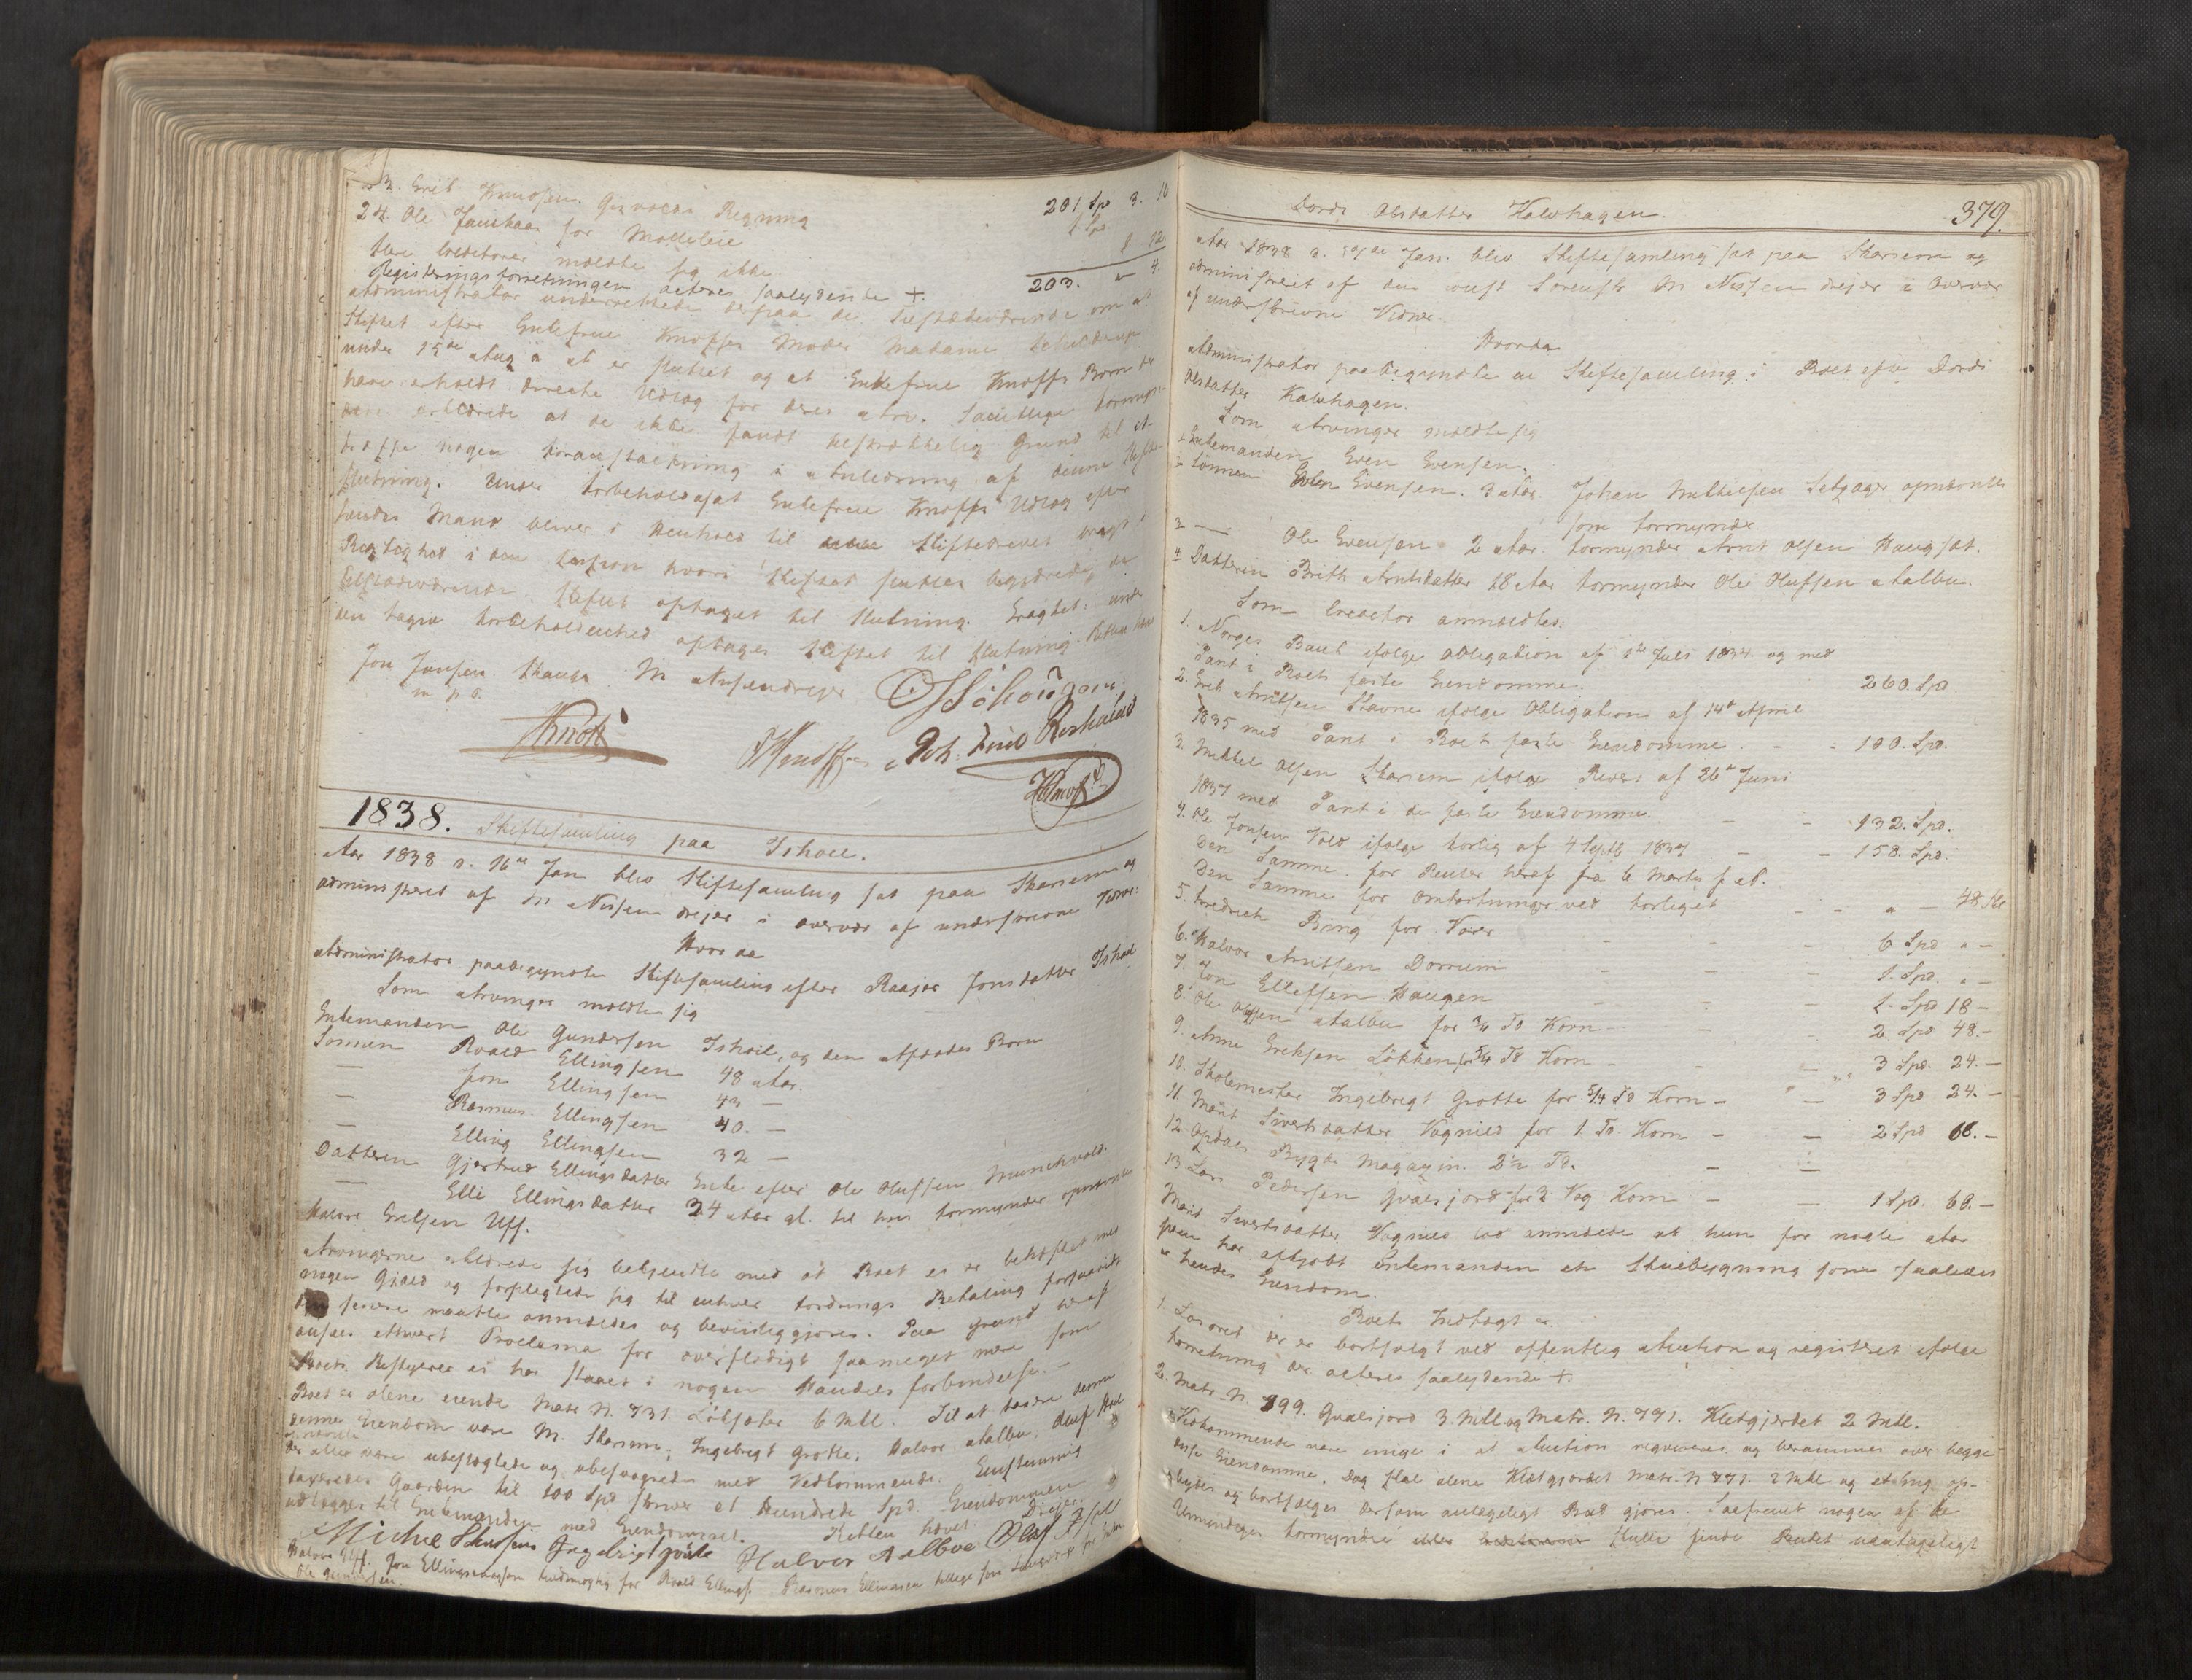 23. Erik Knudsen Regning 201 Spd 3. 10
24. Ole for Mølleleie 1 Spd
flere Creditorer meldte sig ikke 1 12
Registreringsforretningen acteres saalydende +. 203. " 4.
Administrator underrettede derpaa de Tilstædeværende om at
Skiftet efter Enkefrue Knoffs Moder Madame
under 15de Aug d. A. er sluttet og at Enkefrue Knoffs Børn der
have erholdt directe Udlæg for deres Arv. Samtlige Formyn-
dere erklærede at de ikke fandt tilstrækkelig Grund til at
træffe nogen Foranstaltning i Anledning af denne Skifte-
slutning. Under Forbehold af at Enkefrue Knoffs Udlæg efter
hendes Mand bliver i Henhold til Skiftebrevet bragt i
Rigtighed i den Session hvori Skiftet sluttes begjærede de
Tilstædeværende Skiftet optaget til Slutning. Eragtet: under
den tagne Forbeholdenhed optages Skiftet til Slutning. Retten hævet
Jon Jonsen Skauga M Nissendrejer
m. p. P.
Knoff JKnoff Joh. HKnoff
1838. Skiftesamling paa Ishoel.
Aar 1838 d. 16de Jan blev Skiftesamling sat paa Skarsem og
administreret af M Nissen drejer i Overvær af underskrevne Vidner:
Hvor da
Administrator paabegyndte Skiftesamling efter Raagne Jonsdatter Ishoel
Som Arvinger meldte sig
Enkemanden Ole Gundersen Ishoel, og den Afdødes Børn
Sønnen Roald Ellingsen 48 Aar.
— Jon Ellingsen 43 —
— Rasmus Ellingsen 40. —
— Elling Ellingsen 32 —
Datteren Gjertrud Ellingsdatter Enke efter Ole Olufsen Munckvold.
— Elli Ellingsdatter 34 Aar gl. til hvis Formynder opnævntes
Halvor Eriksen Uff.
Arvingerne erklærede sig bekjendte med at Boet ei er behæftet med
nogen Gjæld og forpligtede sig til enhver Fordrings Betaling forsaavidt
senere maatte anmeldes og beviisliggjøres. Paa Grund heraf
ansees ethvert Proclama for overflødigt saameget mere som
Boets Bestyrer ei har staaet i nogen Handels forbindelse. —
Boet er alene eiende Matr N. 731. Løkseter 6 Mkl. Til at taxere denne
denne Eiendom vare M. Skarsem, Ingebrigt Grøtte, Halvor Aalbu, Oluf
der alle vare ubeslægtede og ubesvogrede med Vedkommende. Eenstemmig
taxeredes Gaarden til 100 Spd skriver et Hundrede Spd. Eiendommen
udlægges til Enkemanden med Eiendomsret. Retten hævet. Drejer
Michel Skarsem Ingebrigt Grøtte Halvor Aalboe Oluf
Halvor Uff. Jon Ellingsen fuldmægtig for Roald Ellings. Rasmus Ellingsen tillige som Laugværge for
Ole Gundersen.
Dordi Olsdatter Kaldhagen. 379.
Aar 1838 d. Jan. blev Skiftesamling sat paa Skarsem og
administreret af den const Sorenskr M Nissen drejer i Overvær
af underskrevne Vidner.
Hvorda
Administrator paabegyndte en Skiftesamling i Boet efter Dordi
Olsdatter Kaldhagen.
Som Arvinger meldte sig
1 Enkemanden Even Evensen.
2 Sønnen Even Evensen. 3 Aar. Johan Mikkelsen opnævntes
som Formynder
3 — Ole Evensen 2 Aar. Formynder Arnt Olsen Haugset.
4 Datteren Brith Arntsdatter 18 Aar Formynder Ole Olufsen Aalbu.
Som Creditor anmeldtes:
1. Norges Bank ifølge Obligation af 1ste Juli 1834 og med
Pant i Boets faste Eiendomme. 260. Spd
2. Erik Arntsen Stavne ifølge Obligation af 14de April
1835 med Pant i Boets faste Eiendomme. - - 100. Spd.
3. Mikkel Olsen Skarsem ifølge Revers af 26de Juni
1837 med Pant i de faste Eiendomme - - 132. Spd.
4. Ole Jonsen Vold ifølge Forlig af 4 Septb 1837 - - 158. Spd.
Den Samme for Renter heraf fra 6 Marts f. A.
Den Samme for Omkostninger ved Forliget - - " - 48 sk
5. Fredrich Bing for Varer - - - 6 Spd " -
6. Halvor Arntsen Dorrum - - - 1. Spd. " -
7. Jon Ellefsen Haugen - - - 1. Spd 18 -
8. Ole Olsen Aalbu for ¾ Td Korn - - 2 Spd 48. -
9. Arne Eriksen Løkken for 5/4 Td Korn - - - 3 Spd. 24. -
10. Skolemester Ingebrigt Grøtte for 5/4 Td Korn - - 3 Spd 24. -
11 Marit Sivertsdatter Vognild for 1. Td. Korn - - 2 Spd 66. -
12. Opdals Bygde Magazin. 2½ Td. - -
13 Lars Pedersen Gvalsjord for 2 Vog Korn - - 1 Spd. 60. -
Marit Sivertsdatter Vognild lod anmelde at hun for nogle Aar
siden har afkjøbt Enkemanden en Stuebygning som saaledes
er hendes Eiendom.
Boets Indtægt er
1. Løsøret der er bortsolgt ved offentlig Auction og registreret ifølge
Forretning der acteres saalydende +.
2. Matr. N. 799. Gvalsjord 3. Mkl. og Matr. N. 771. Kletgjerdet 2 Mkl.
Vedkommende vare enige i at Auction requireres og berammes over begge
disse Eiendomme. Dog skal alene Kletgjerdet Matr. N 771. 2 Mkl og
bydes og bortsælges dersom antageligt Bud gjøres. Saafremt nogen af de
Umyndiges Formyndere skulle finde Budet uantageligt